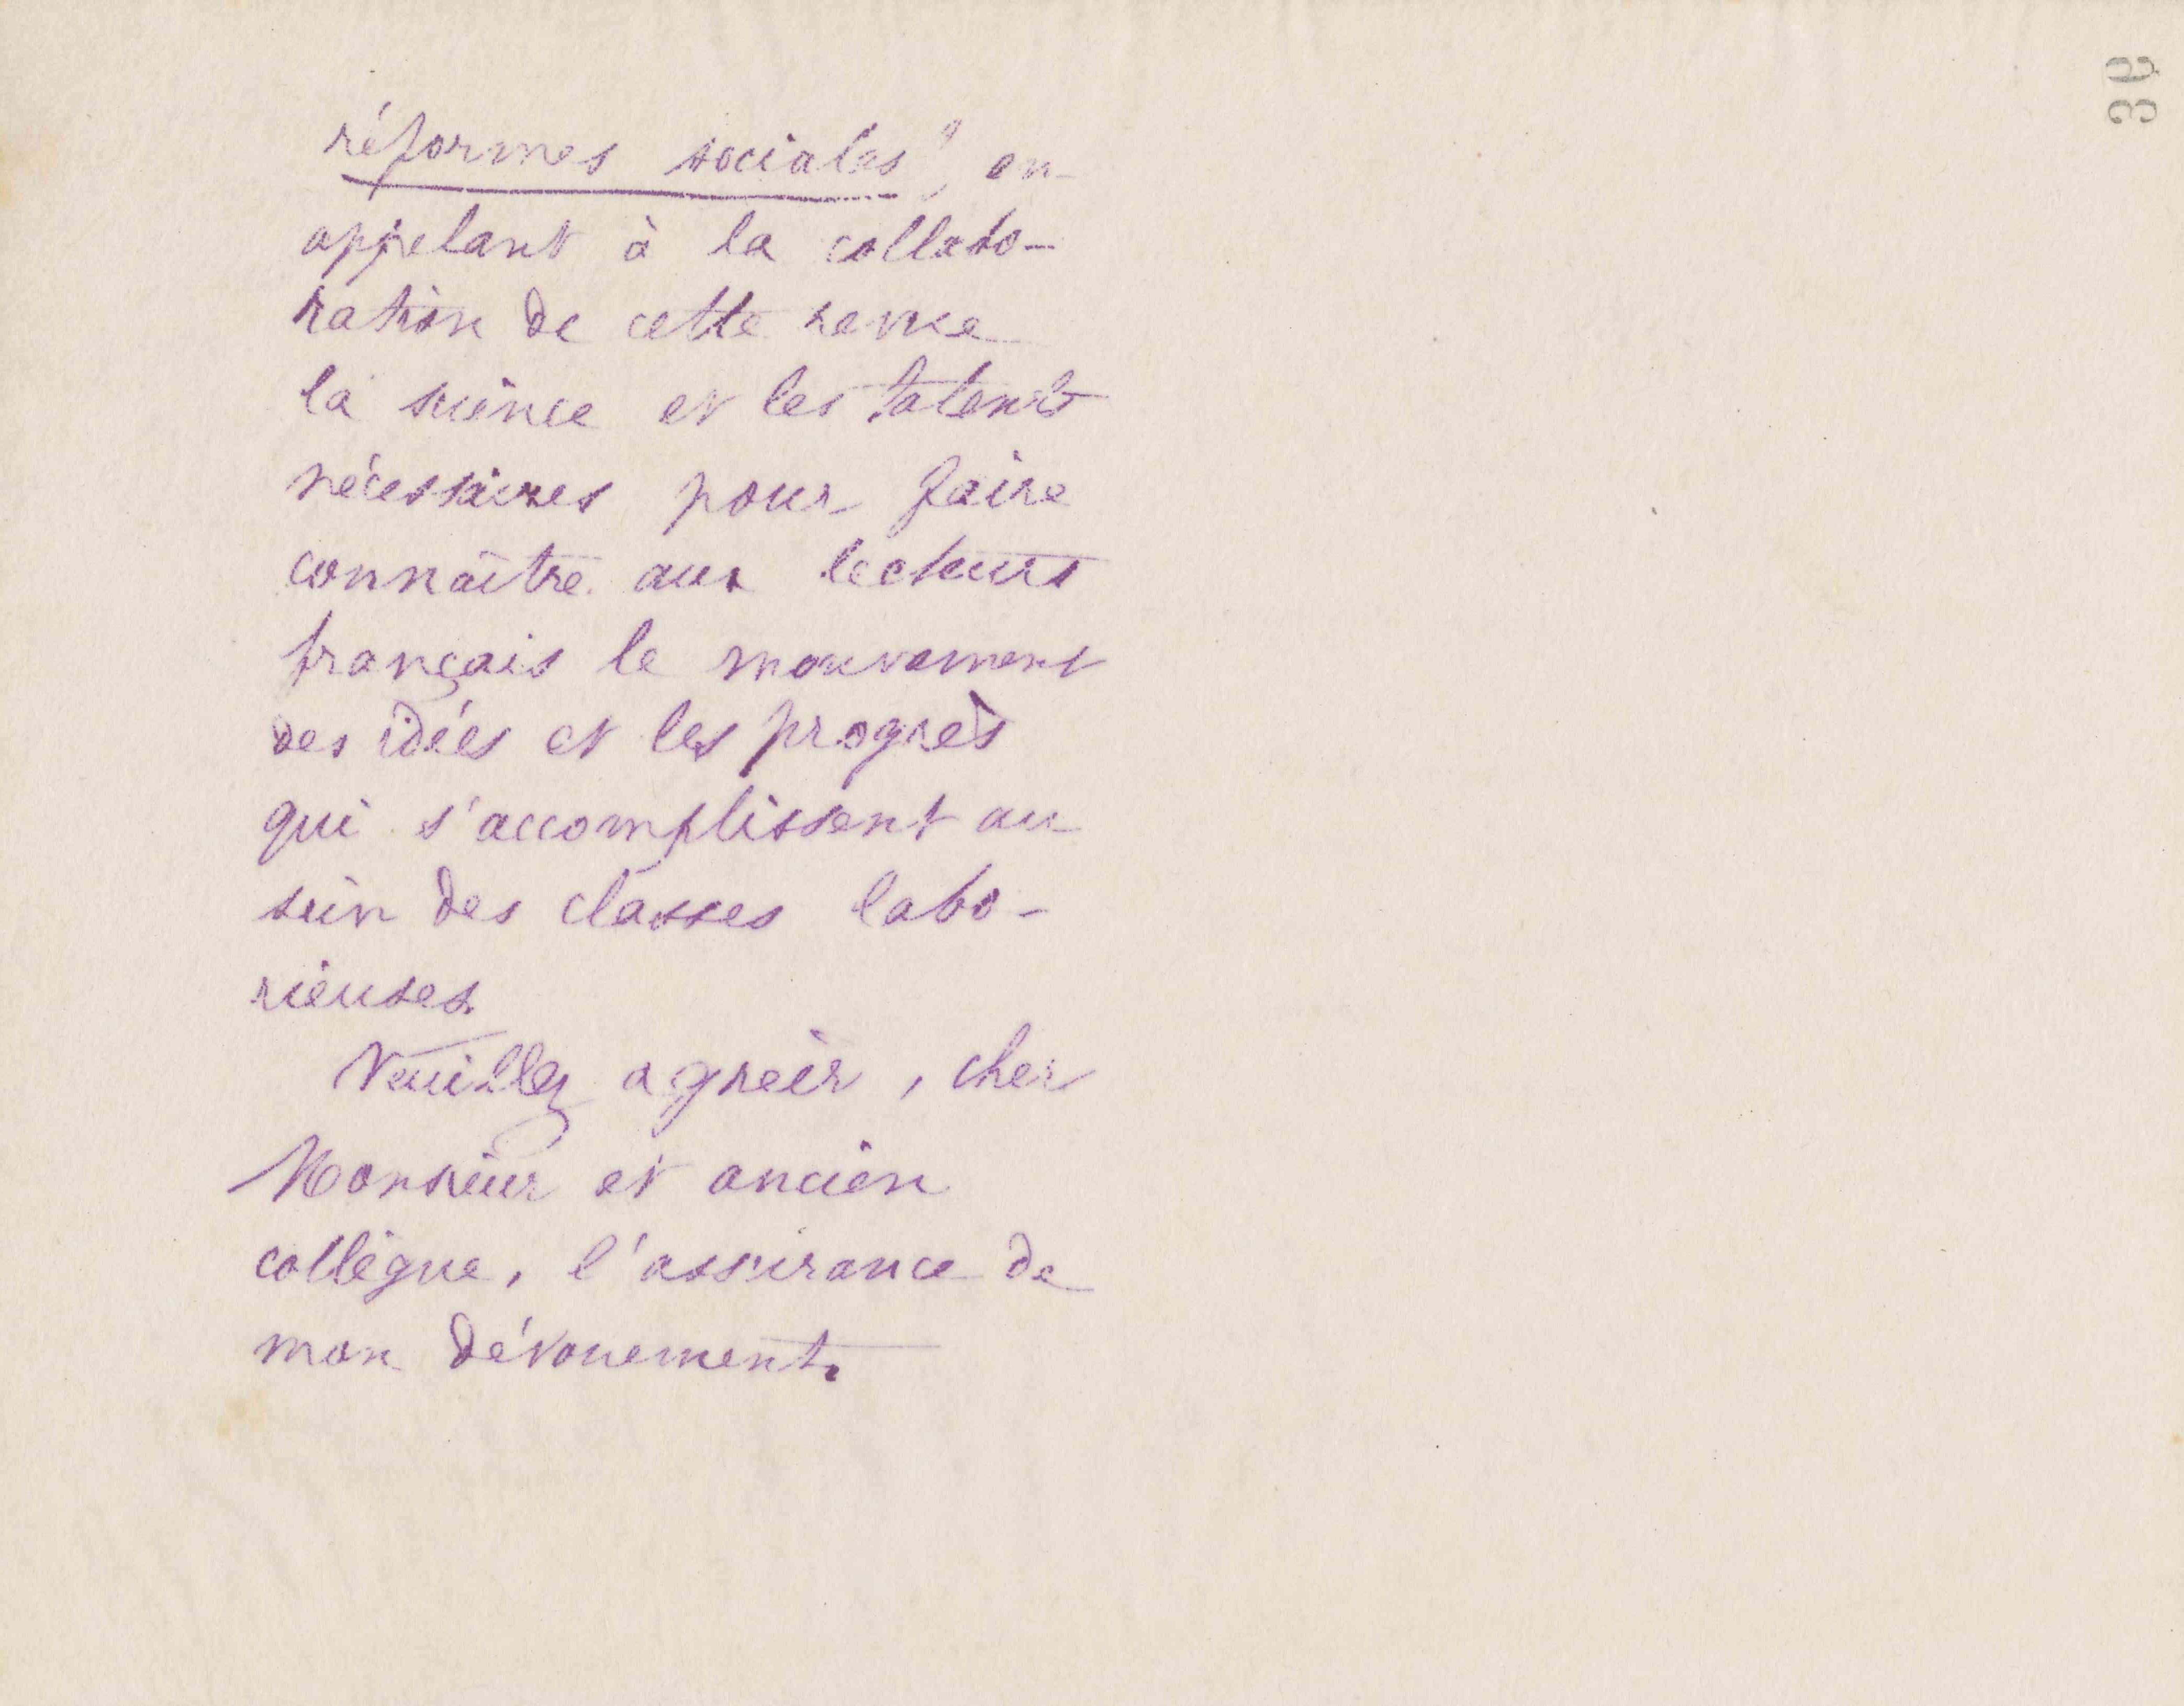 réformes sociales", en
appelant à la collabo-
ration de cette revue
la science et les talents
nécessaires pour faire
connaître aux lecteurs
français le mouvement
des idées et les progrès
qui s'accomplissent au
sein des classes labo-
rieuses.
Veuillez agréer, cher
Monsieur et ancien
collègue, l'assurance de
mon dévouement.